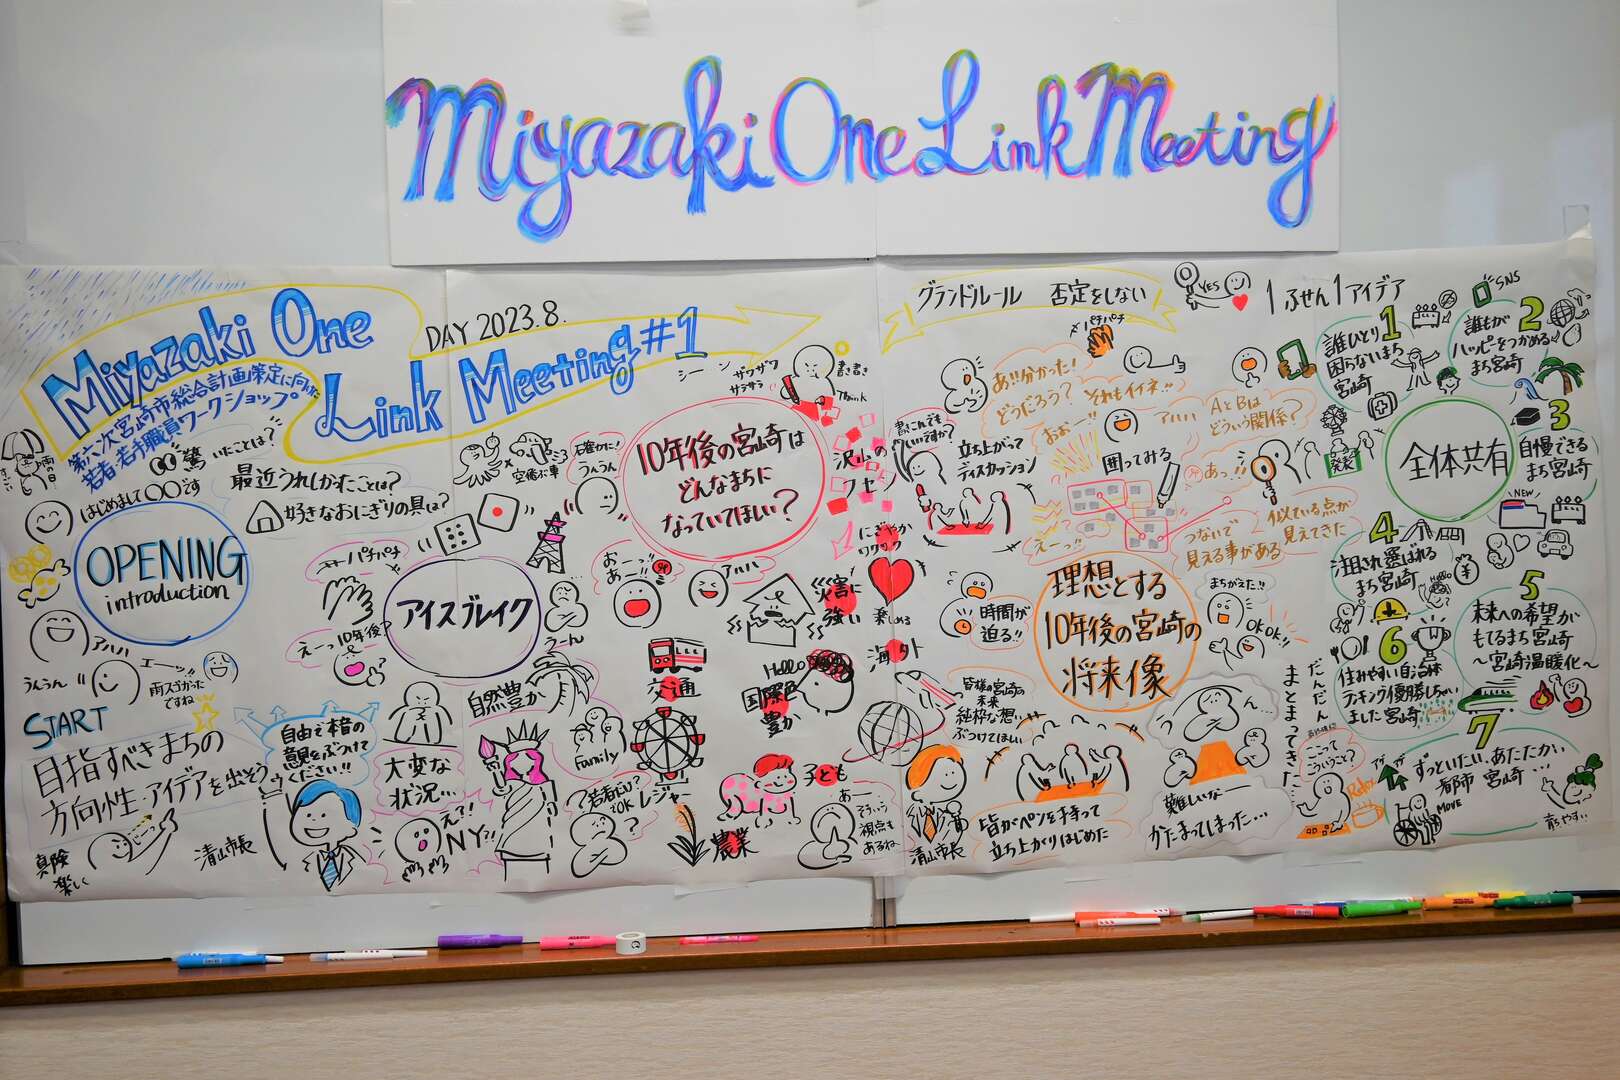 Miyazaki One Link Meeting
Miyazaki One
Link Meeting #1
DAY 2023.8.
第六次宮崎市総合計画策定に向けた
若者・若手職員ワークショップ
雨の日
すごい
はじめまして〇〇です
驚いたことは?
最近うれしかったことは?
好きなおにぎりの具は?
OPENING
introduction
アハハ
うんうん
エーッ!!
雨スゴかった
ですね
START
目指すべきまちの
方向性・アイデアを出そう
真険
楽しい
清山市長
自由で本音の
意見をぶつけて
ください!!
パチパチ
アイスブレイク
えーっ10年後?
×
空飛ぶ車
石確かに!
うんうん
うーん
大変な
状況…
え?!
NY?!
自然豊か
Family
?若者EU??
OK
レジャー
シーン
ザワザワ
サラサラ
書き書き
10年後の宮崎は
どんなまちに
なっていてほしい?
沢山の
フセン
にぎやか
ワクワク
おー!!
あー!!
アハハ
災害に
強い
楽しめる
海外
交通
Hello
国際色
豊か
子ども
農業
あー
そういう
視点も
あるね
グランドルール 否定をしない
YES
1ふせん1アイデア
パチパチ
書くこれでも
いいですか?
立ち上がって
ディスカッション
あ!!分かった!
どうだろう?
それもイイネ!!
おおー
アハハ
AとBは
どういう関係?
囲ってみる
あっ!!
発表
えーっ!!
つないで
見える事がある
似ている点が
見えてきた
時間が
迫る!!
理想とする
10年後の宮崎の
将来像
まちがえた!!
OKOK!!
皆様の宮崎の
未来
純粋な想い
ぶつけてほしい
清山市長
皆がペンを持って
立ち上がりはじめた
難しいなー
かたまってしまった…
だんだん
まとまってきた!
ここって
こういうこと?
Relax
全体共有
1
誰ひとり
困らないまち
宮崎
SNS
2
誰もが
ハッピーをつかめる
まち宮崎
3
自慢できる
まち宮崎
NEW
4
注目され選ばれる
まち宮崎
Hello
5
未来への希望が
もてるまち宮崎
〜宮崎温暖化〜
6
住みやすい自治体
ランキング優勝しちゃい
ました宮崎
7
ずっといたい、あたたかい
都市 宮崎…
MOVE
育ちやすい